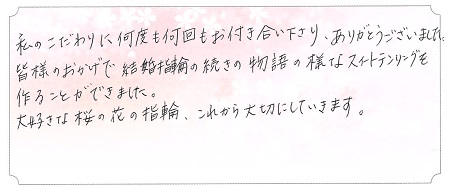 私のこだわりに何度も何回もお付き合い下さり、ありがとうございました。
皆様のおかげで結婚指輪の続きの物語の様なスイートテンリングを
作ることができました。
大好きな桜の花の指輪、これから大切にしていきます。